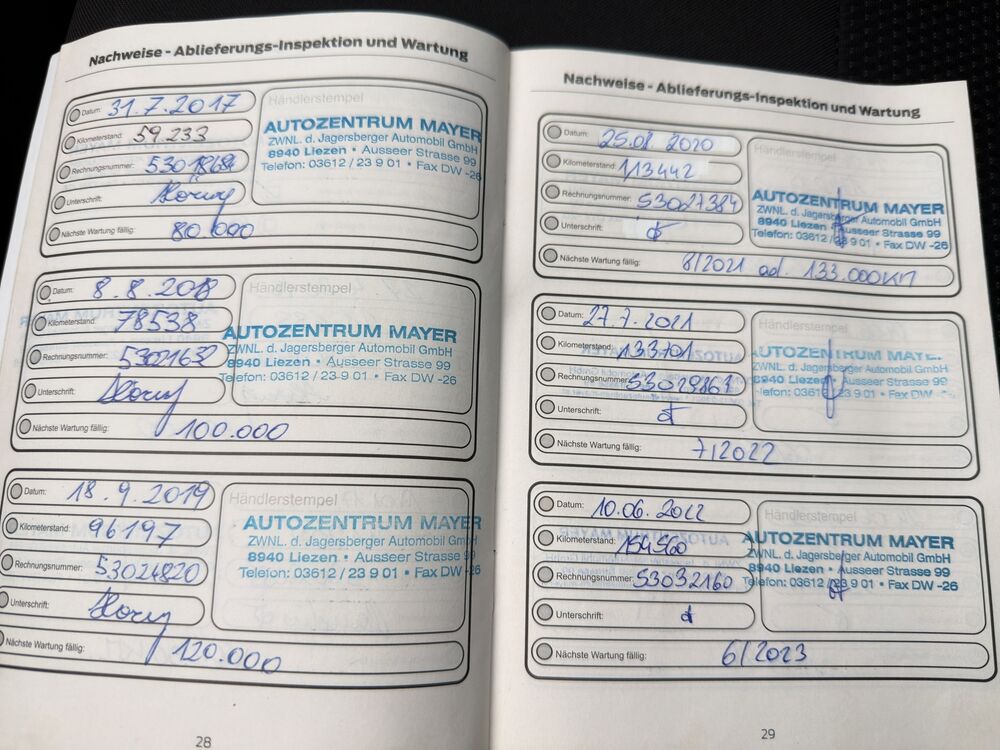 Nachweise - Ablieferungs-Inspektion und Wartung
Datum: 31.7.2017
Kilometerstand: 59.233
Rechnungsnummer: 53018684
Unterschrift:
Nächste Wartung fällig: 80.000
Händlerstempel
AUTOZENTRUM MAYER
ZWNL. d. Jagersberger Automobil GmbH
8940 Liezen • Ausseer Strasse 99
Telefon: 03612 / 23 9 01 • Fax DW -26
Datum: 8.8.2018
Kilometerstand: 78538
Rechnungsnummer: 53021632
Unterschrift:
Nächste Wartung fällig: 100.000
Händlerstempel
AUTOZENTRUM MAYER
ZWNL. d. Jagersberger Automobil GmbH
8940 Liezen • Ausseer Strasse 99
Telefon: 03612 / 23 9 01 • Fax DW -26
Datum: 18.9.2019
Kilometerstand: 96197
Rechnungsnummer: 53024820
Unterschrift:
Nächste Wartung fällig: 120.000
Händlerstempel
AUTOZENTRUM MAYER
ZWNL. d. Jagersberger Automobil GmbH
8940 Liezen • Ausseer Strasse 99
Telefon: 03612 / 23 9 01 • Fax DW -26
28
Nachweise - Ablieferungs-Inspektion und Wartung
Datum: 25.08 2020
Kilometerstand: 113442
Rechnungsnummer: 53027384
Unterschrift:
Nächste Wartung fällig: 8/2021 od. 133.000KM
Händlerstempel
AUTOZENTRUM MAYER
ZWNL. d. Jagersberger Automobil GmbH
8940 Liezen • Ausseer Strasse 99
Telefon: 03612 / 23 9 01 • Fax DW -26
Datum: 27.7.2021
Kilometerstand: 133701
Rechnungsnummer: 53029863
Unterschrift:
Nächste Wartung fällig: 7/2022
Händlerstempel
AUTOZENTRUM MAYE
ZWNL. d. Jagersberger Automobil GmbH
8940 Liezen • Ausseer Strasse 99
Telefon: 03612 / 23 9 01 • Fax DW
Datum: 10.06.2022
Kilometerstand: 154500
Rechnungsnummer: 53032160
Unterschrift:
Nächste Wartung fällig: 6/2023
Händlerstempel
AUTOZENTRUM MAYER
ZWNL. d. Jagersberger Automobil GmbH
8940 Liezen • Ausseer Strasse 99
Telefon: 03612 / 23 9 01 • Fax DW -26
29